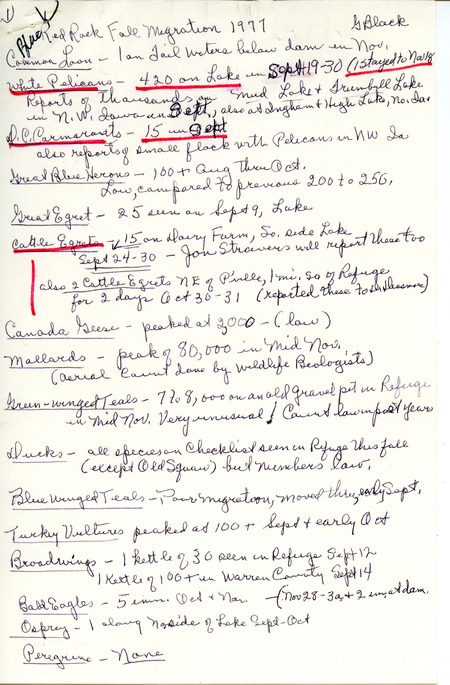 1)
Black
Red Rock Fall Migration 1977 G Black
Common Loon - 1 on Tail Waters below dam in Nov.
White Pelicans - 420 on Lake in Sept 19-30 (1 stayed to Nov 18
Reports of thousands on Mud Lake & Trumbull Lake
in N.W. Iowa in Sept, also at Ingham & High Lake, No. Ia.
D.C. Cormorants - 15 in Sept
also reports of small flock with Pelicans in NW Ia
Great Blue Herons - 100+ Aug thru Oct.
Low, compared to previous 200 to 250.
Great Egret - 25 seen on Sept 9, Lake
Cattle Egrets - 15 on Dairy Farm, So. side Lake
Sept 24-30 - Jon Stravers will report these too
also 2 Cattle Egrets NE of P'ville, 1 mi. so of Refuge
for 2 days Oct 30-31 (reported these to
Canada Geese - peaked at 2,000 - (low)
Mallards - peak of 80,000 in Mid Nov.
(Aerial Count done by Wildlife Biologists)
Green-winged Teals - 7 to 8,000 on an old gravel pit in Refuge
in Mid Nov. Very unusual! Count low in past years
Ducks - all species on Checklist seen in Refuge this fall
(except Old Squaw) but numbers low.
Blue Winged Teals - Poor migration, moved thru, early Sept.
Turkey Vultures peaked at 100+ Sept & early Oct
Broadwings - 1 kettle of 30 seen in Refuge Sept 12
1 Kettle of 100+ in Warren County Sept 14
Bald Eagles - 5 imm. Oct & Nov. - (Nov 28 - 3 a, & 2 imm at dam.
Osprey - 1 along No side of Lake Sept-Oct
Peregrine - None